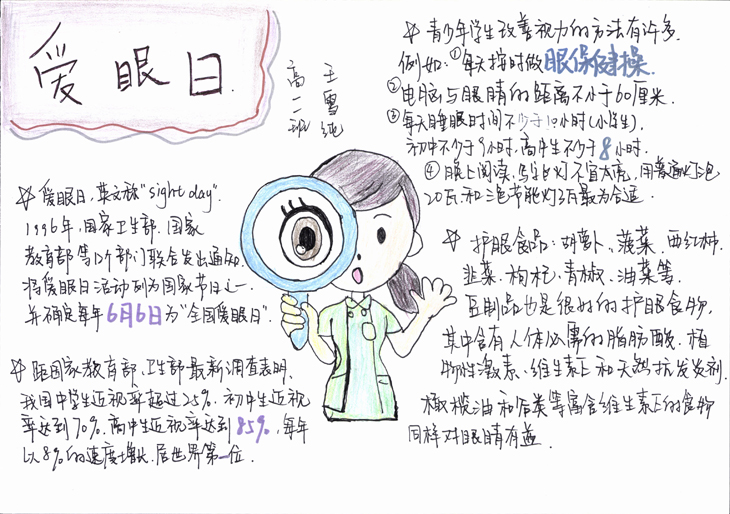 爱眼日
王雪纯
高一二班
☆爱眼日,英文称"sight day".
1996年,国家卫生部、国家
教育部等12个部门联合发出通知,
将爱眼日活动列为国家节日之一,
并确定每年6月6日为"全国爱眼日".
☆据国家教育部、卫生部最新调查表明,
我国中学生近视率超过25%,初中生近视
率达到70%,高中生近视率达到85%,每年
以8%的速度增长,居世界第一位.
☆青少年学生改善视力的方法有许多.
例如:①每天按时做眼保健操.
②电脑与眼睛的距离不小于60厘米.
③每天睡眠时间不少于10小时(小学生).
初中不少于9小时,高中生不少于8小时.
④晚上阅读、写字灯不宜太亮,用普通灯泡
20瓦和节能灯3瓦最为合适.
☆护眼食品:胡萝卜、菠菜、西红柿、
韭菜、枸杞、青椒、油菜等.
豆制品也是很好的护眼食物,
其中含有人体必需的脂肪酸、植
物性激素、维生素E和天然抗发炎剂.
橄榄油和谷类等富含维生素E的食物
同样对眼睛有益.